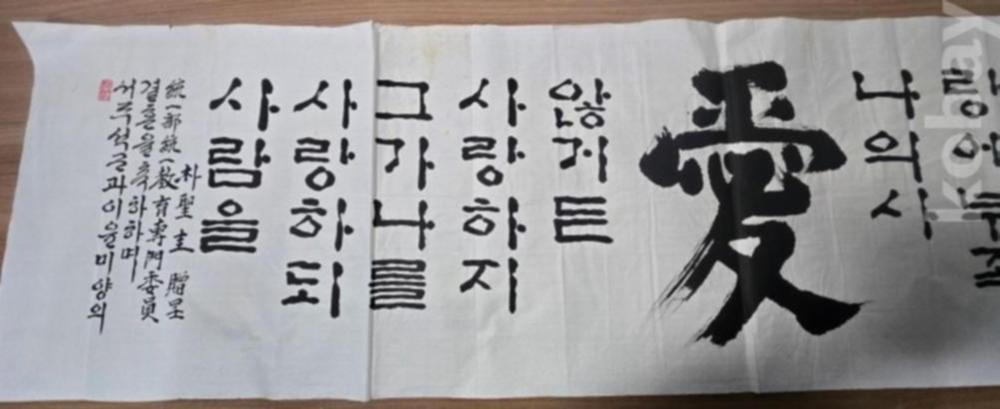 서주석군과 이윤미양의
결혼을 축하하며
統一部 統一敎育專門委員
朴聖圭 贈呈
사람을
사랑하되
그가 나를
사랑하지
않거든
愛
나의 사
kobay